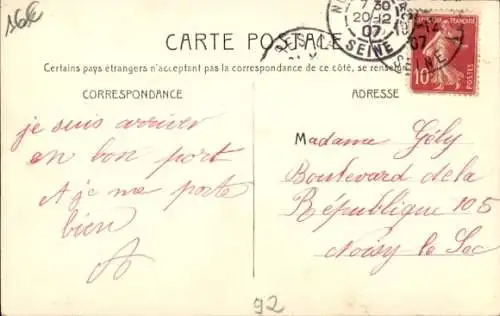 16€
7 30
20-12
07
SEINE
CARTE POSTALE
10
Certains pays étrangers n'acceptant pas la correspondance de ce côté, se renseigner
CORRESPONDANCE
ADRESSE
je suis arriver
en bon port
A je me porte
bien
Madame Gély
Boulevard de la
République 105
Noisy le Sec
92